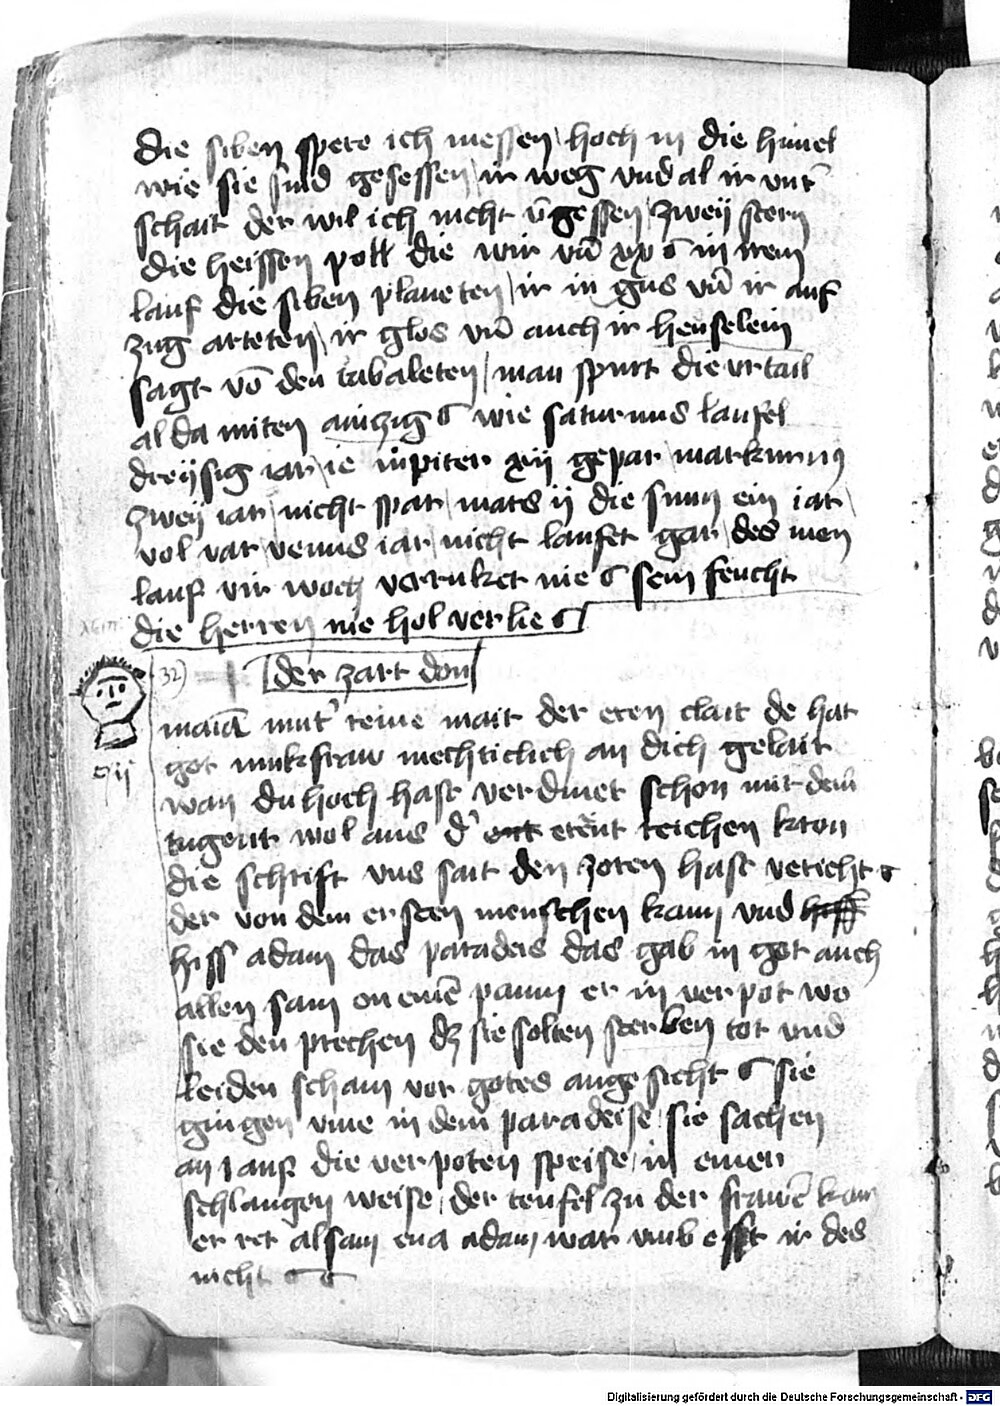 die siben spere ich messen hoch in die himel
wie sie sind gesessen ir weg vnd al ir vnt'
schait der wil ich nicht v̄gessen zweÿ stern
die heissen poli die wir vn̄ in irem
lauf die siben planeten ir in gus vn̄ ir auf
zug arteten ir glos vn̄ auch ir heuselein
sagt vō den tabaleten man spurt die vrtail
al da miten ainzig wie saturnus laufel
dreÿsig iar ie iupiter xij gepar markurius
zweÿ iar nicht spar mars ij die sunn ein iar
vol var venus iar nicht laufet gar des men
lauf vir woch verruket nie sein feucht
die herren nie hol verlies
32 der zart don
maiā mut' reine mait der eren clait de hat
got iunkfraw mechticlich an dich gelait
wan du hoch hast verdinet schon mit dem
tugent wol aus d' erent reichen kron
die schrift vns sait den zoren hast vericht
der von dem ersten menschen kam vnd
hiss adam das paradeis das gab in got auch
allen sam on einē paum er in verpot wo
sie den prechen dz sie solten sterben tot vnd
leiden scham vor gotes angesicht sie
gingen vme in dem paradeise sie sachen
an auf die verpoten speise in einer
schlangen weise der teufel zu der frawē kam
er ret alsam eua adam war vmb esst ir des
nicht
Digitalisierung gefördert durch die Deutsche Forschungsgemeinschaft - DFG